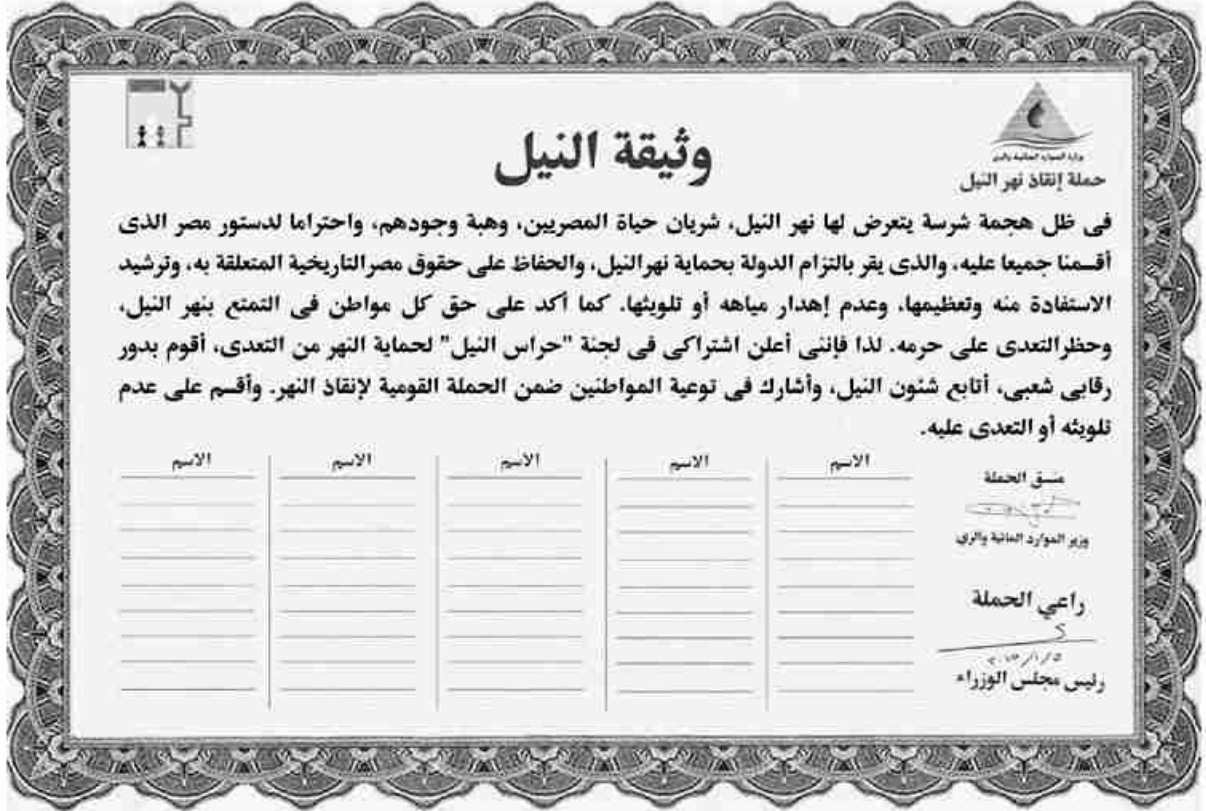 وزارة الموارد المائية والرى
حملة إنقاذ نهر النيل
وثيقة النيل
فى ظل هجمة شرسة يتعرض لها نهر النيل، شريان حياة المصريين، وهبة وجودهم، واحتراما لدستور مصر الذى
أقسمنا جميعا عليه، والذى يقر بالتزام الدولة بحماية نهر النيل، والحفاظ على حقوق مصر التاريخية المتعلقة به، وترشيد
الاستفادة منه وتعظيمها، وعدم إهدار مياهه أو تلويثها. كما أكد على حق كل مواطن فى التمتع بنهر النيل،
وحظر التعدى على حرمه. لذا فإننى أعلن اشتراكى فى لجنة "حراس النيل" لحماية النهر من التعدى، أقوم بدور
رقابى شعبى، أتابع شئون النيل، وأشارك فى توعية المواطنين ضمن الحملة القومية لإنقاذ النهر. وأقسم على عدم
تلويثه أو التعدى عليه.
الاسم الاسم الاسم الاسم الاسم
منسق الحملة
وزير الموارد المائية والري
راعي الحملة
٢٠١٥/١/٥
رئيس مجلس الوزراء